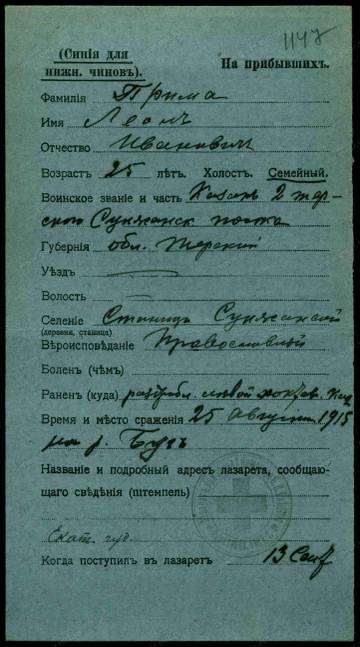 1147
(Синія для
нижн. чиновъ).
На прибывшихъ.
Фамилія Прима
Имя Леонъ
Отчество Ивановичъ
Возрастъ 25 лѣтъ. Холостъ. Семейный.
Воинское званіе и часть Казакъ 2 тер-
скаго Сунженск полка
Губернія обл. Терский
Уѣздъ
Волость
Селеніе Станицы Сунженской
(деревня, станица)
Вѣроисповѣданіе Православный
Боленъ (чѣмъ)
Раненъ (куда) раздробл. лѣвой
Время и мѣсто сраженія 25 августа 1915
на р. Бугъ
Названіе и подробный адресъ лазарета, сообщаю-
щаго свѣдѣнія (штемпель)
Екат. губ.
Когда поступилъ въ лазаретъ 13 Сент